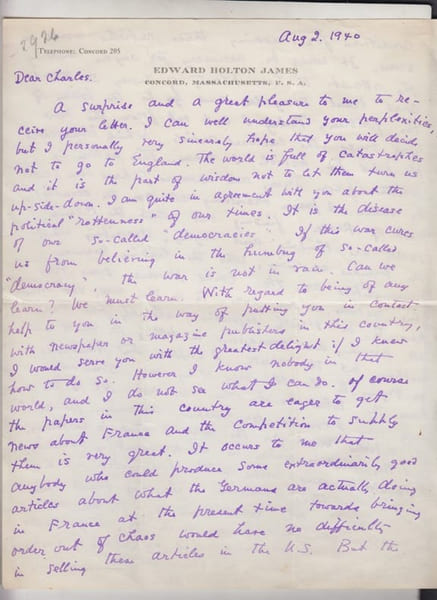 2926
TELEPHONE: CONCORD 205
Aug 2. 1940
EDWARD HOLTON JAMES
CONCORD, MASSACHUSETTS, U. S. A.
Dear Charles.
A surprise and a great pleasure to me to re-
ceive your letter. I can well understand your perplexities,
but I personally very sincerely hope that you will decide
not to go to England. The world is full of catastrophes
and it is the part of wisdom not to let them turn us
up-side-down. I am quite in agreement with you about the
political "rottenness" of our times. It is the disease
of our so-called "democracies". If this war cures
us from believing in the humbug of so-called
"democracy", the war is not in vain. Can we
learn? We must learn. With regard to being of any
help to you in the way of putting you in contact
with newspaper or magazine publishers in this country,
I would serve you with the greatest delight if I knew
how to do so. However I know nobody in that
world, and I do not see what I can do. Of course
the papers in this country are eager to get
news about France and the competition to supply
them is very great. It occurs to me that
anybody who could produce some extraordinarily good
articles about what the Germans are actually doing
in France at the present time towards bringing
order out of chaos would have no difficulty
in selling these articles in the U.S. But the